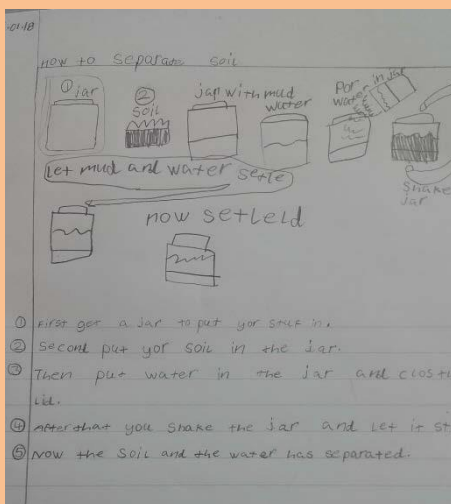 01.18
how to separate soil
① jar
② soil
jar with mud
water
Por water in jar
Let mud and water setle
Shake jar
now setleld
① First get a jar to put yor stuf in.
② Second put yor soil in the jar.
③ Then put water in the jar and clos th
Lid.
④ After that you shake the jar and Let it st
⑤ Now the soil and the water has separated.